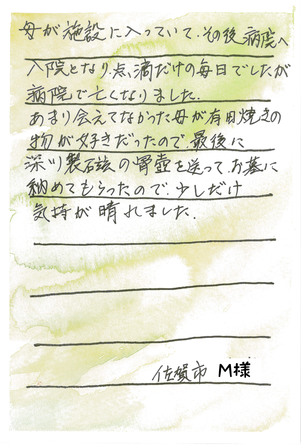 母が施設に入っていて、その後病院へ
入院となり、点滴だけの毎日でしたが
病院で亡くなりました。
あまり会えてなかった母が有田焼きの
物が好きだったので、最後に
深川製磁の骨壺を送って、お墓に
納めてもらったので、少しだけ
気持が晴れました。
佐賀市 M様